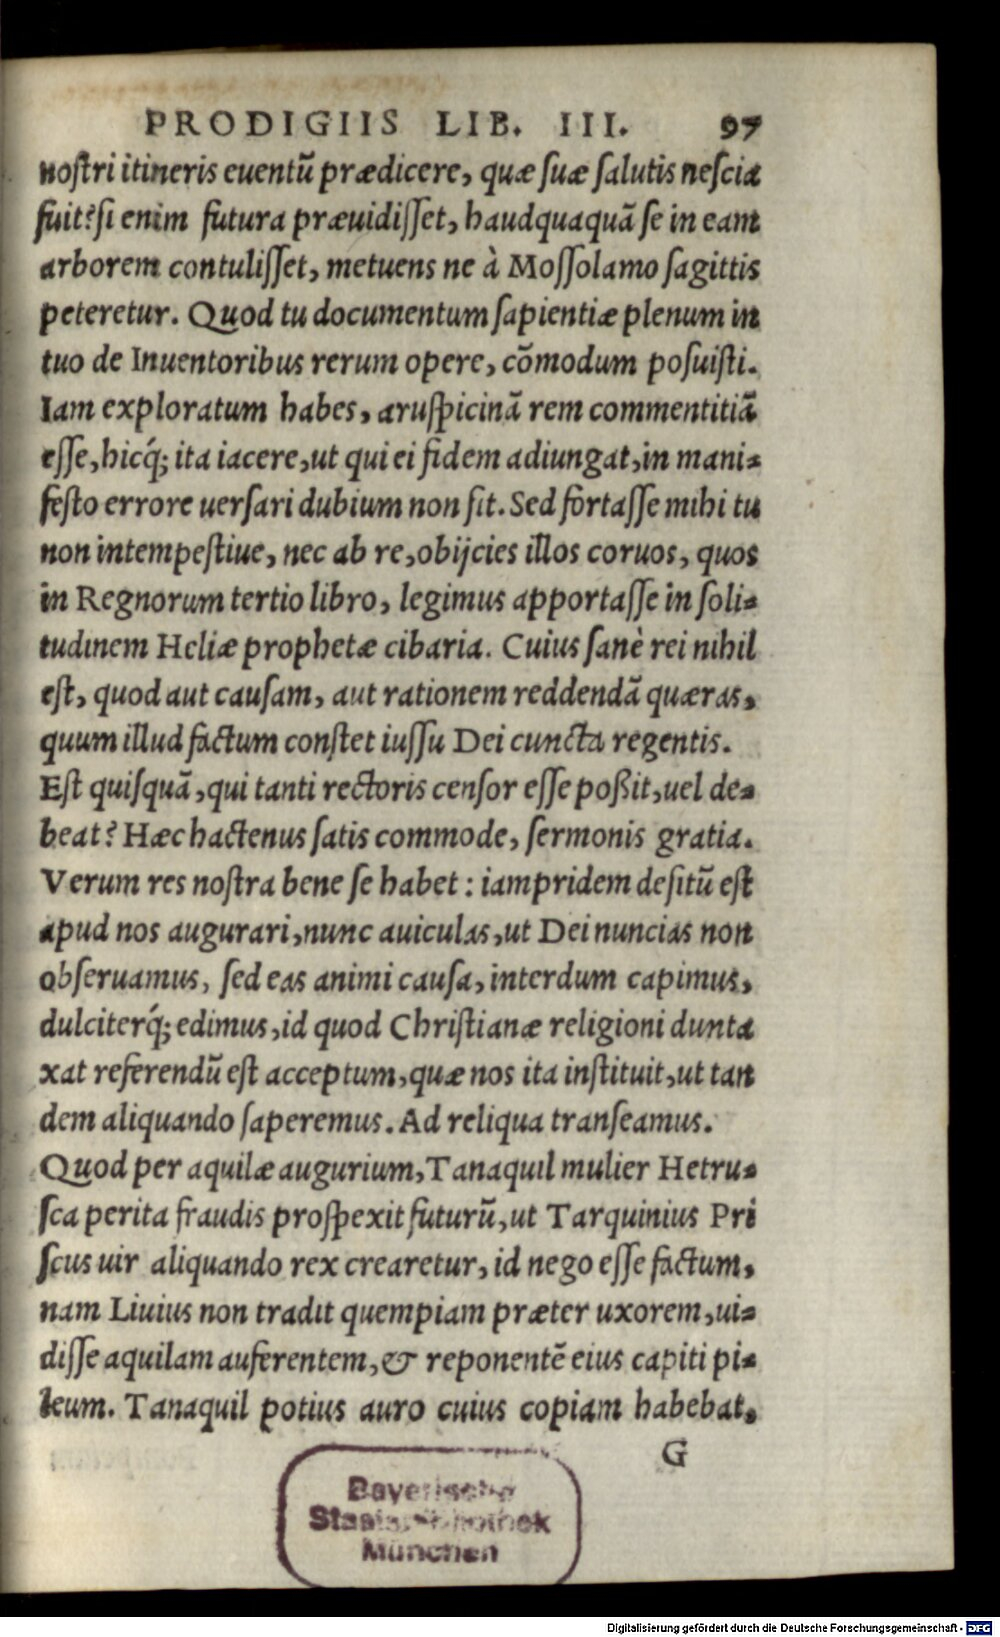 PRODIGIIS LIB. III. 97
noſtri itineris euentū prædicere, quæ ſuæ ſalutis neſcia
fuit? ſi enim futura præuidiſſet, haudquaquã ſe in eam
arborem contuliſſet, metuens ne à Moſſolamo ſagittis
peteretur. Quod tu documentum ſapientiæ plenum in
tuo de Inuentoribus rerum opere, cõmodum poſuiſti.
Iam exploratum habes, aruſpicinã rem commentitiã
eſſe, hicq́; ita iacere, ut qui ei fidem adiungat, in mani-
feſto errore uerſari dubium non ſit. Sed fortaſſe mihi tu
non intempeſtiue, nec ab re, obijcies illos coruos, quos
in Regnorum tertio libro, legimus apportaſſe in ſoli-
tudinem Heliæ prophetæ cibaria. Cuius ſanè rei nihil
eſt, quod aut cauſam, aut rationem reddendã quæras,
quum illud factum conſtet iuſſu Dei cuncta regentis.
Eſt quiſquã, qui tanti rectoris cenſor eſſe poßit, uel de-
beat? Hæc hactenus ſatis commode, ſermonis gratia.
Verum res noſtra bene ſe habet: iampridem deſitū eſt
apud nos augurari, nunc auiculas, ut Dei nuncias non
obſeruamus, ſed eas animi cauſa, interdum capimus,
dulciterq́; edimus, id quod Chriſtianæ religioni dunta
xat referendū eſt acceptum, quæ nos ita inſtituit, ut tan
dem aliquando ſaperemus. Ad reliqua tranſeamus.
Quod per aquilæ augurium, Tanaquil mulier Hetru-
ſca perita fraudis proſpexit futurū, ut Tarquinius Pri
ſcus uir aliquando rex crearetur, id nego eſſe factum,
nam Liuius non tradit quempiam præter uxorem, ui-
diſſe aquilam auferentem, & reponentẽ eius capiti pi-
leum. Tanaquil potius auro cuius copiam habebat,
G
Bayerische
Staatsbibliothek
München
Digitalisierung gefördert durch die Deutsche Forschungsgemeinschaft - DFG